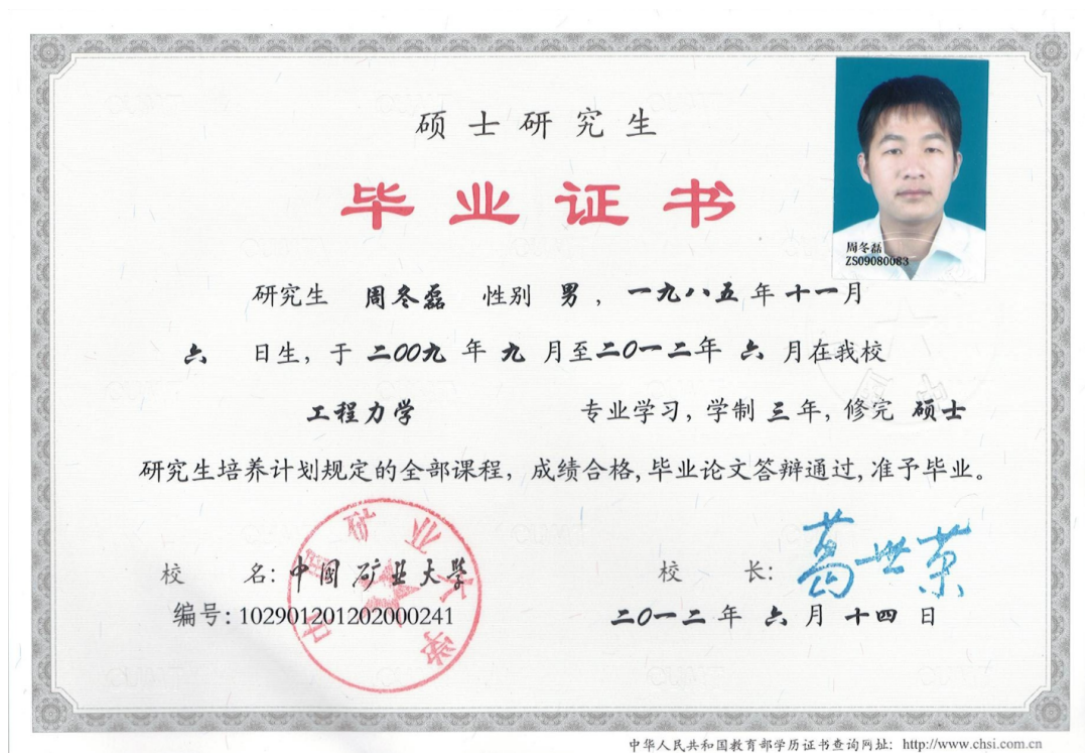 硕士研究生
毕业证书
周冬磊
ZS09080083
研究生 周冬磊 性别 男，一九八五年十一月
六 日生，于 二00九 年 九 月至二0一二年 六 月在我校
工程力学 专业学习，学制 三 年，修完 硕士
研究生培养计划规定的全部课程，成绩合格，毕业论文答辩通过，准予毕业。
中国矿业大学
校 名：中国矿业大学 校 长：葛世荣
编号：102901201202000241 二0一二年 六 月 十四 日
中华人民共和国教育部学历证书查询网址：http://www.chsi.com.cn